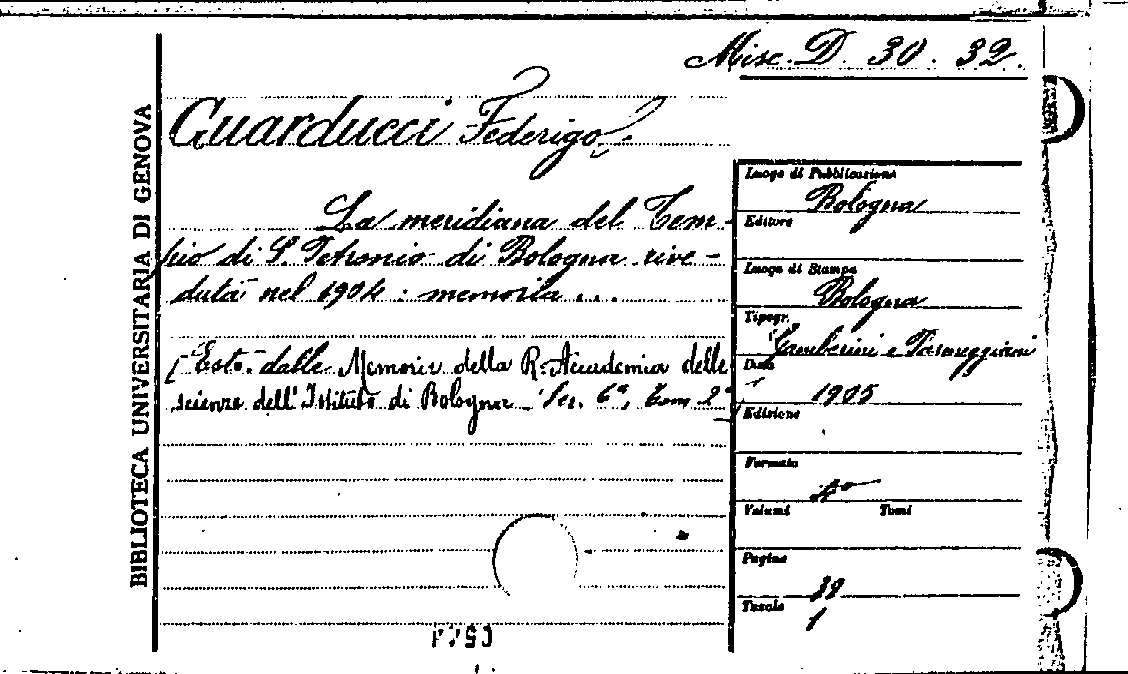 Misc. D. 30. 32.
Guarducci Federigo
La meridiana del Tem-
pio di S. Petronio di Bologna rive-
duta nel 1904 : memoria ...
[Estr. dalle Memorie della R. Accademia delle
scienze dell'Istituto di Bologna Ser. 6ª, Tom 2º]
BIBLIOTECA UNIVERSITARIA DI GENOVA
Luogo di Pubblicazione
Bologna
Editore
Luogo di Stampa
Bologna
Tipogr.
Gamberini e Parmeggiani
Data
1905
Edizione
Formato
4º
Volumi Tomi
Pagine
39
Tavole
1